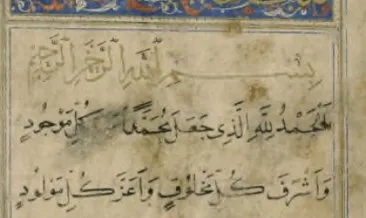 بِسْمِ اللَّهِ الرَّحْمَٰنِ الرَّحِيمِ
اَلْحَمْدُ لِلَّهِ الَّذِي جَعَلَ مُحَمَّدًا كُلِّ مَوْجُودٍ
وَاَشْرَفَ كُلِّ مَخْلُوقٍ وَاَعَزَّ كُلِّ مَوْلُودٍ